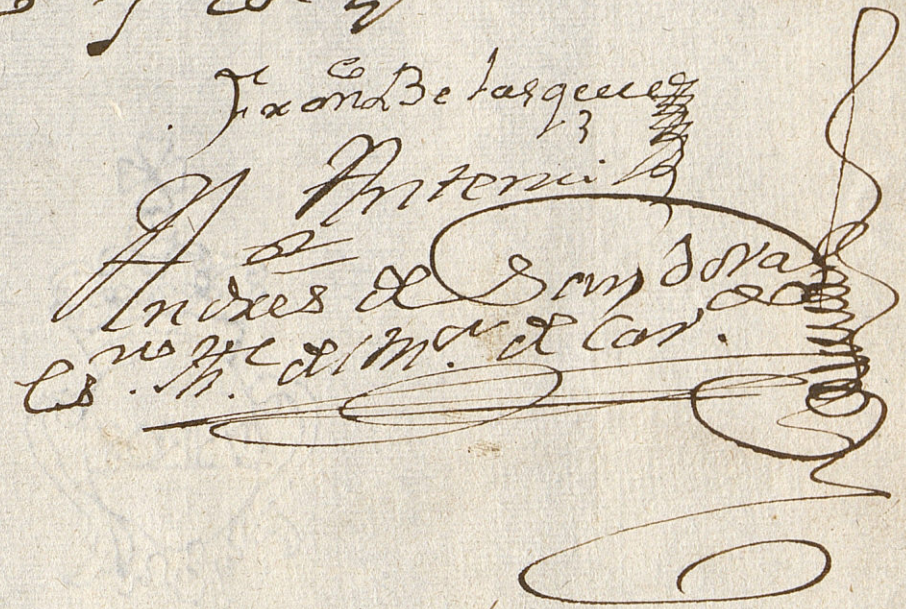 Fran.co Belasquez
Ante mi
Andres de Sandoval
es.no th.e del m.or de Cav.do